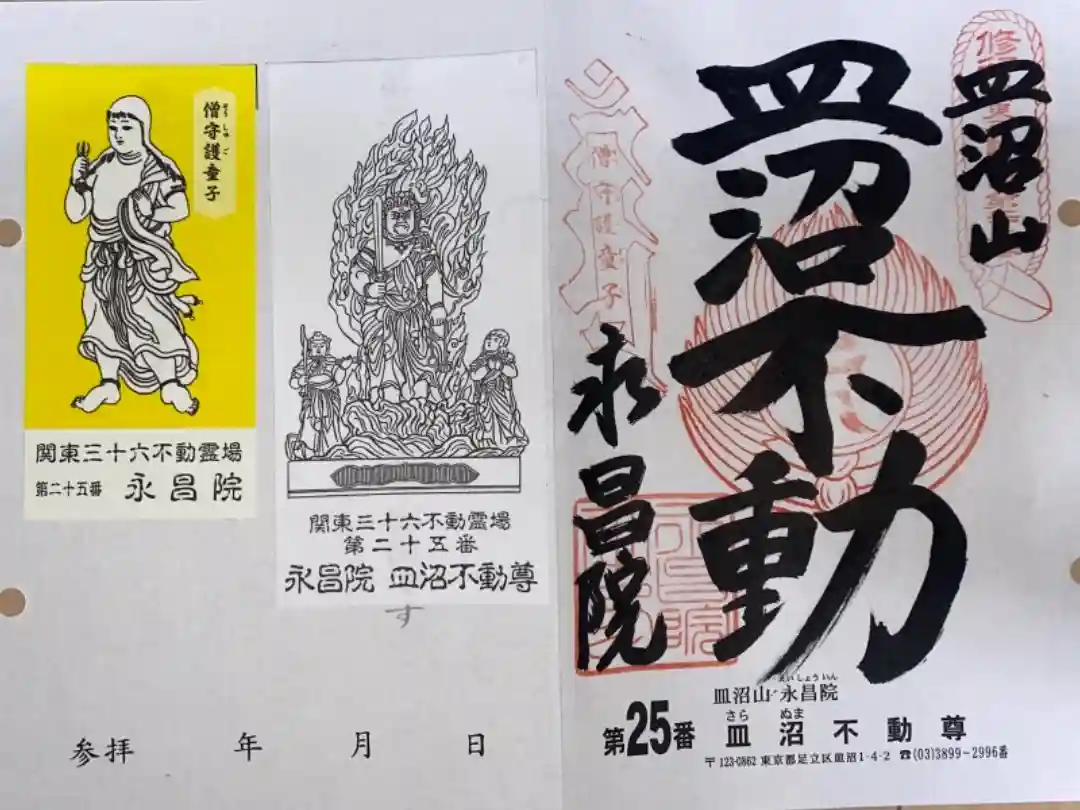 僧守護童子
そうしゅご
関東三十六不動霊場
第二十五番 永昌院
関東三十六不動霊場
第二十五番
永昌院 皿沼不動尊
す
参拝 年 月 日
皿沼山
皿沼不動
永昌院
僧守護童子
皿沼山 永昌院
えいしょういん
第25番 皿沼不動尊
さら ぬま
〒123-0862 東京都足立区皿沼1-4-2 ☎(03)3899-2996番